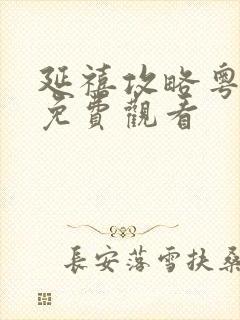 延禧攻略粤
免費觀看
長安落雪扶桑